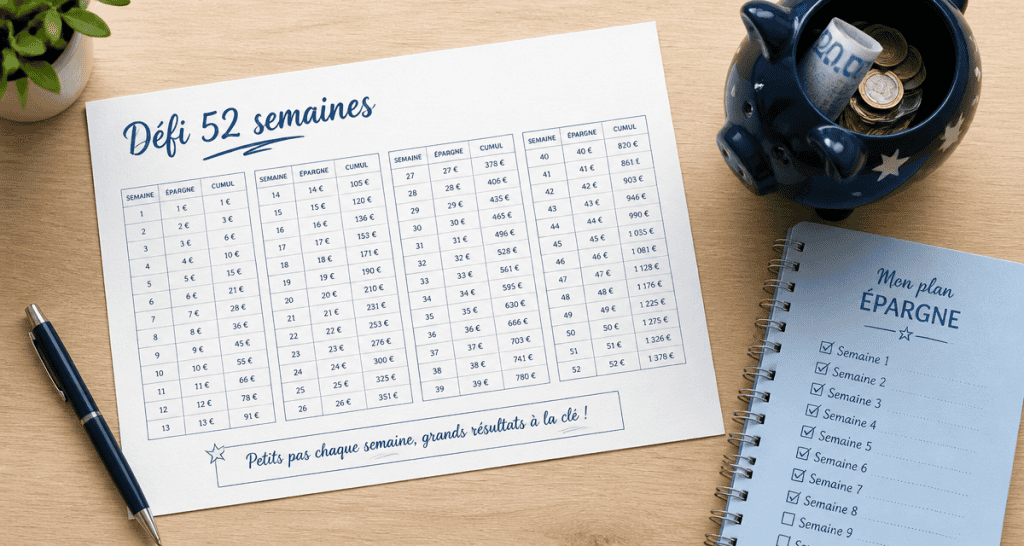 Défi 52 semaines
SEMAINE ÉPARGNE CUMUL
1 1 € 1 €
2 2 € 3 €
3 3 € 6 €
4 4 € 10 €
5 5 € 15 €
6 6 € 21 €
7 7 € 28 €
8 8 € 36 €
9 9 € 45 €
10 10 € 55 €
11 11 € 66 €
12 12 € 78 €
13 13 € 91 €
SEMAINE ÉPARGNE CUMUL
14 14 € 105 €
15 15 € 120 €
16 16 € 136 €
17 17 € 153 €
18 18 € 171 €
19 19 € 190 €
20 20 € 210 €
21 21 € 231 €
22 22 € 253 €
23 23 € 276 €
24 24 € 300 €
25 25 € 325 €
26 26 € 351 €
SEMAINE ÉPARGNE CUMUL
27 27 € 378 €
28 28 € 406 €
29 29 € 435 €
30 30 € 465 €
31 31 € 496 €
32 32 € 528 €
33 33 € 561 €
34 34 € 595 €
35 35 € 630 €
36 36 € 666 €
37 37 € 703 €
38 38 € 741 €
39 39 € 780 €
SEMAINE ÉPARGNE CUMUL
40 40 € 820 €
41 41 € 861 €
42 42 € 903 €
43 43 € 946 €
44 44 € 990 €
45 45 € 1 035 €
46 46 € 1 081 €
47 47 € 1 128 €
48 48 € 1 176 €
49 49 € 1 225 €
50 50 € 1 275 €
51 51 € 1 326 €
52 52 € 1 378 €
Petits pas chaque semaine, grands résultats à la clé !
Mon plan
ÉPARGNE
Semaine 1
Semaine 2
Semaine 3
Semaine 4
Semaine 5
Semaine 6
Semaine 7
Semaine 8
Semaine 9